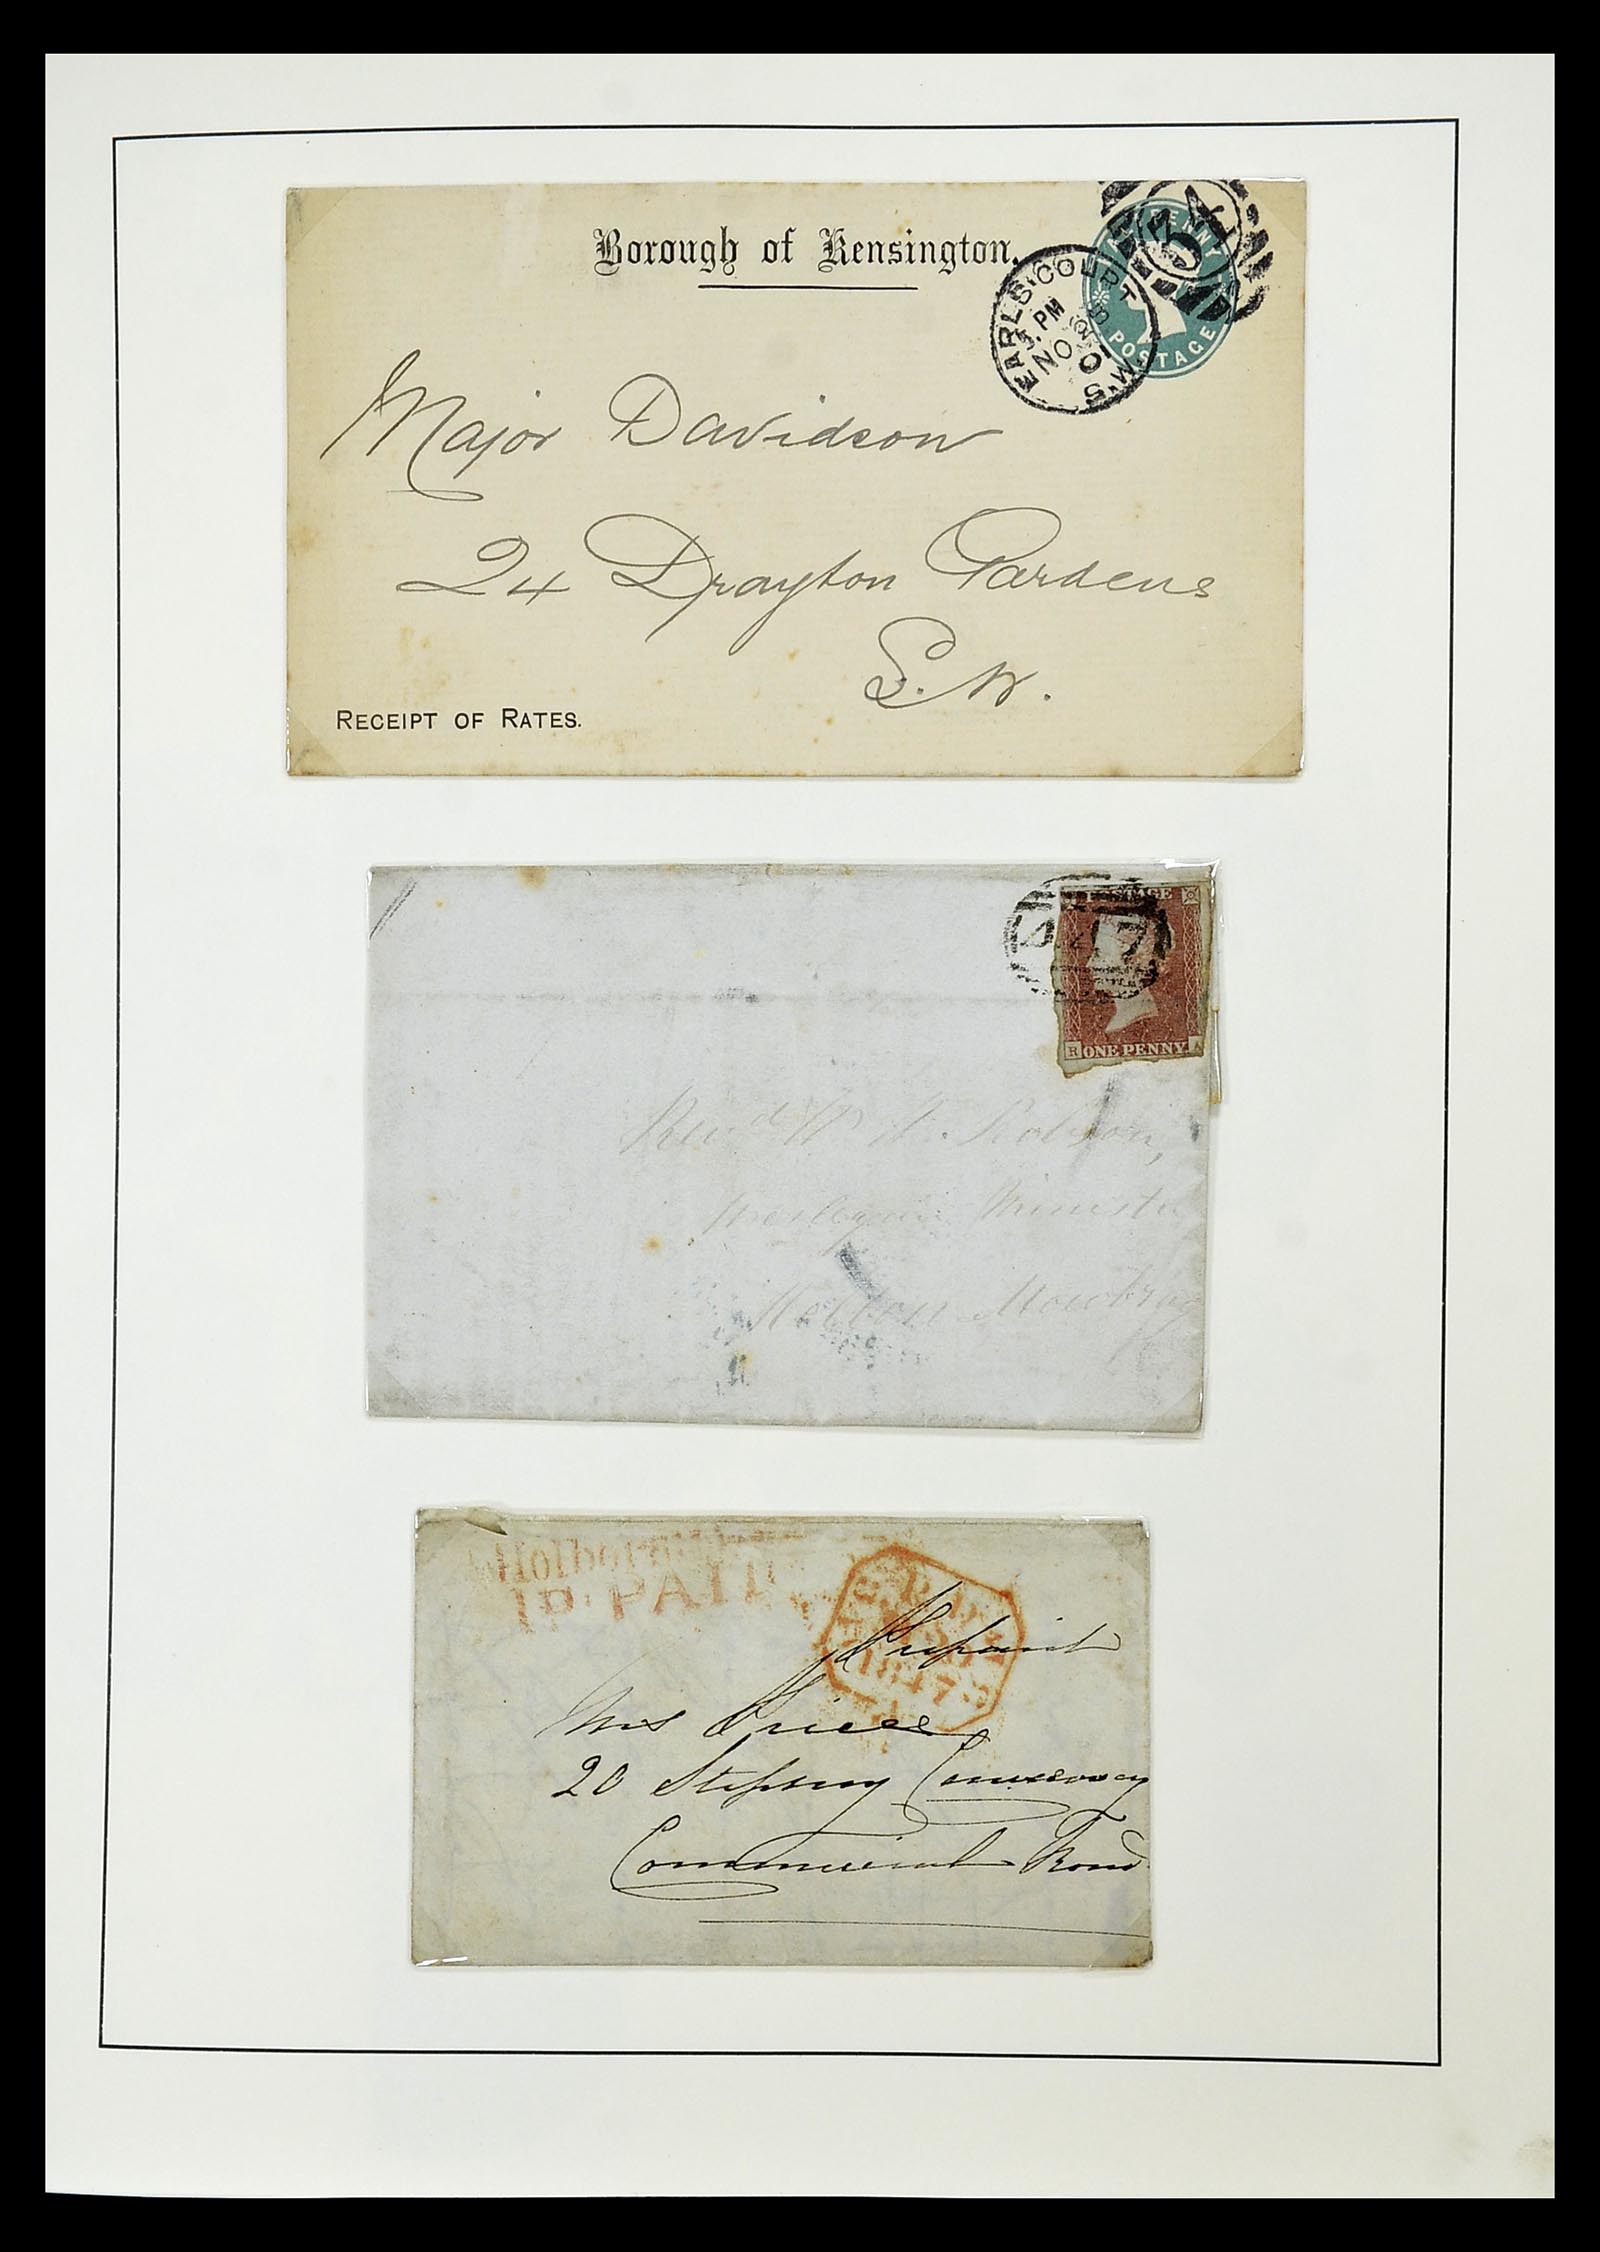 Borough of Kensington.
EARLS COURT S.W.
5 PM
NO
PENNY
POSTAGE
Major Davidson
24 Drayton Gardens
S.W.
RECEIPT OF RATES.
POSTAGE
R ONE PENNY A
Revd W. H. Robson,
Wesleyan Minister
Melton Mowbray
Holborn
1D. PAID
1847
Prepaid
20 Stepney Causeway
Commercial Road